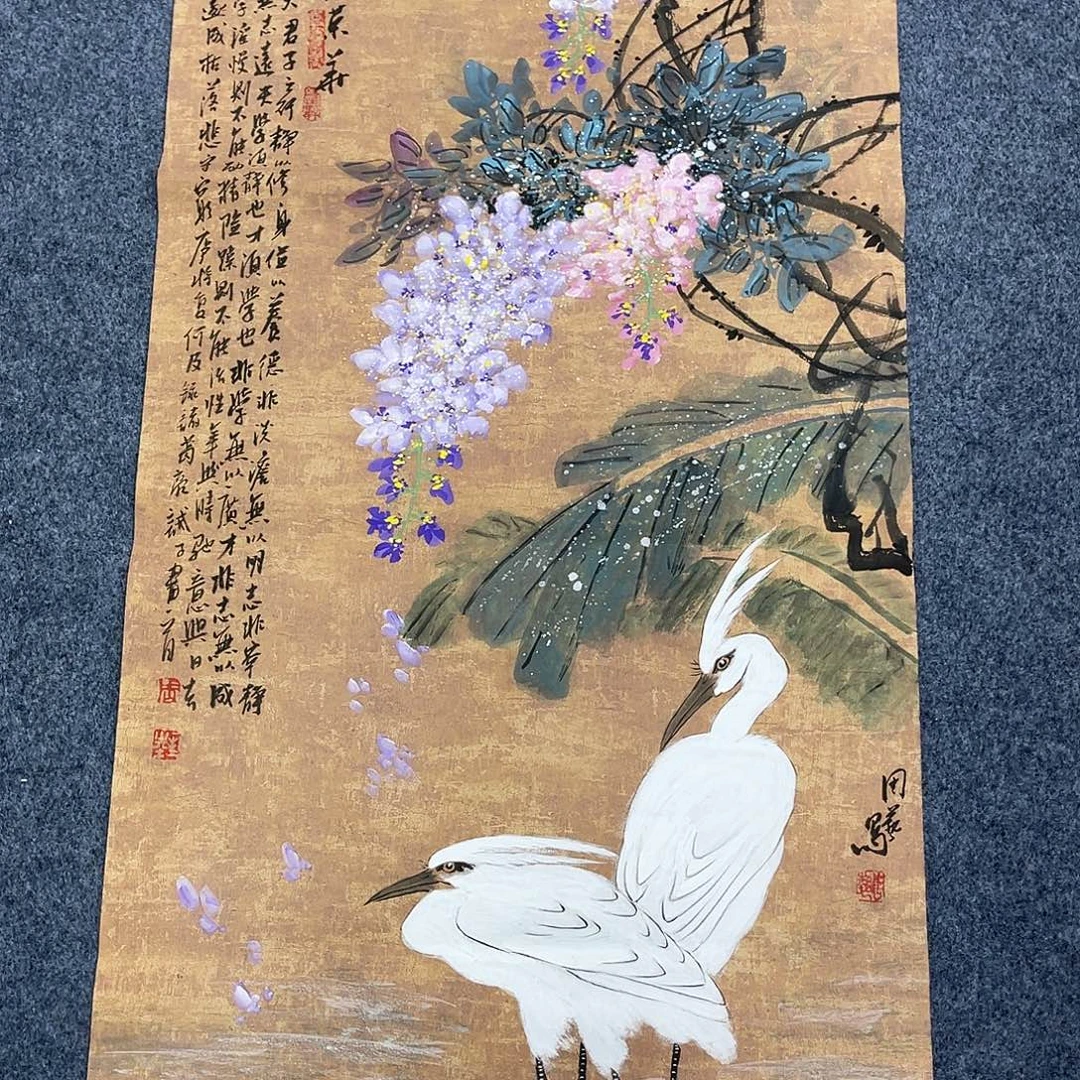 榮華
夫君子之行靜以修身儉以養德非淡澹無以明志非寧靜
無志遠夫學須靜也才須學也非學無以廣才非志無以成
學淫慢則不能勵精險躁則不能治性年與時馳意與日去
遂成枯落悲守窮廬將復何及錄諸葛亮誡子書一首